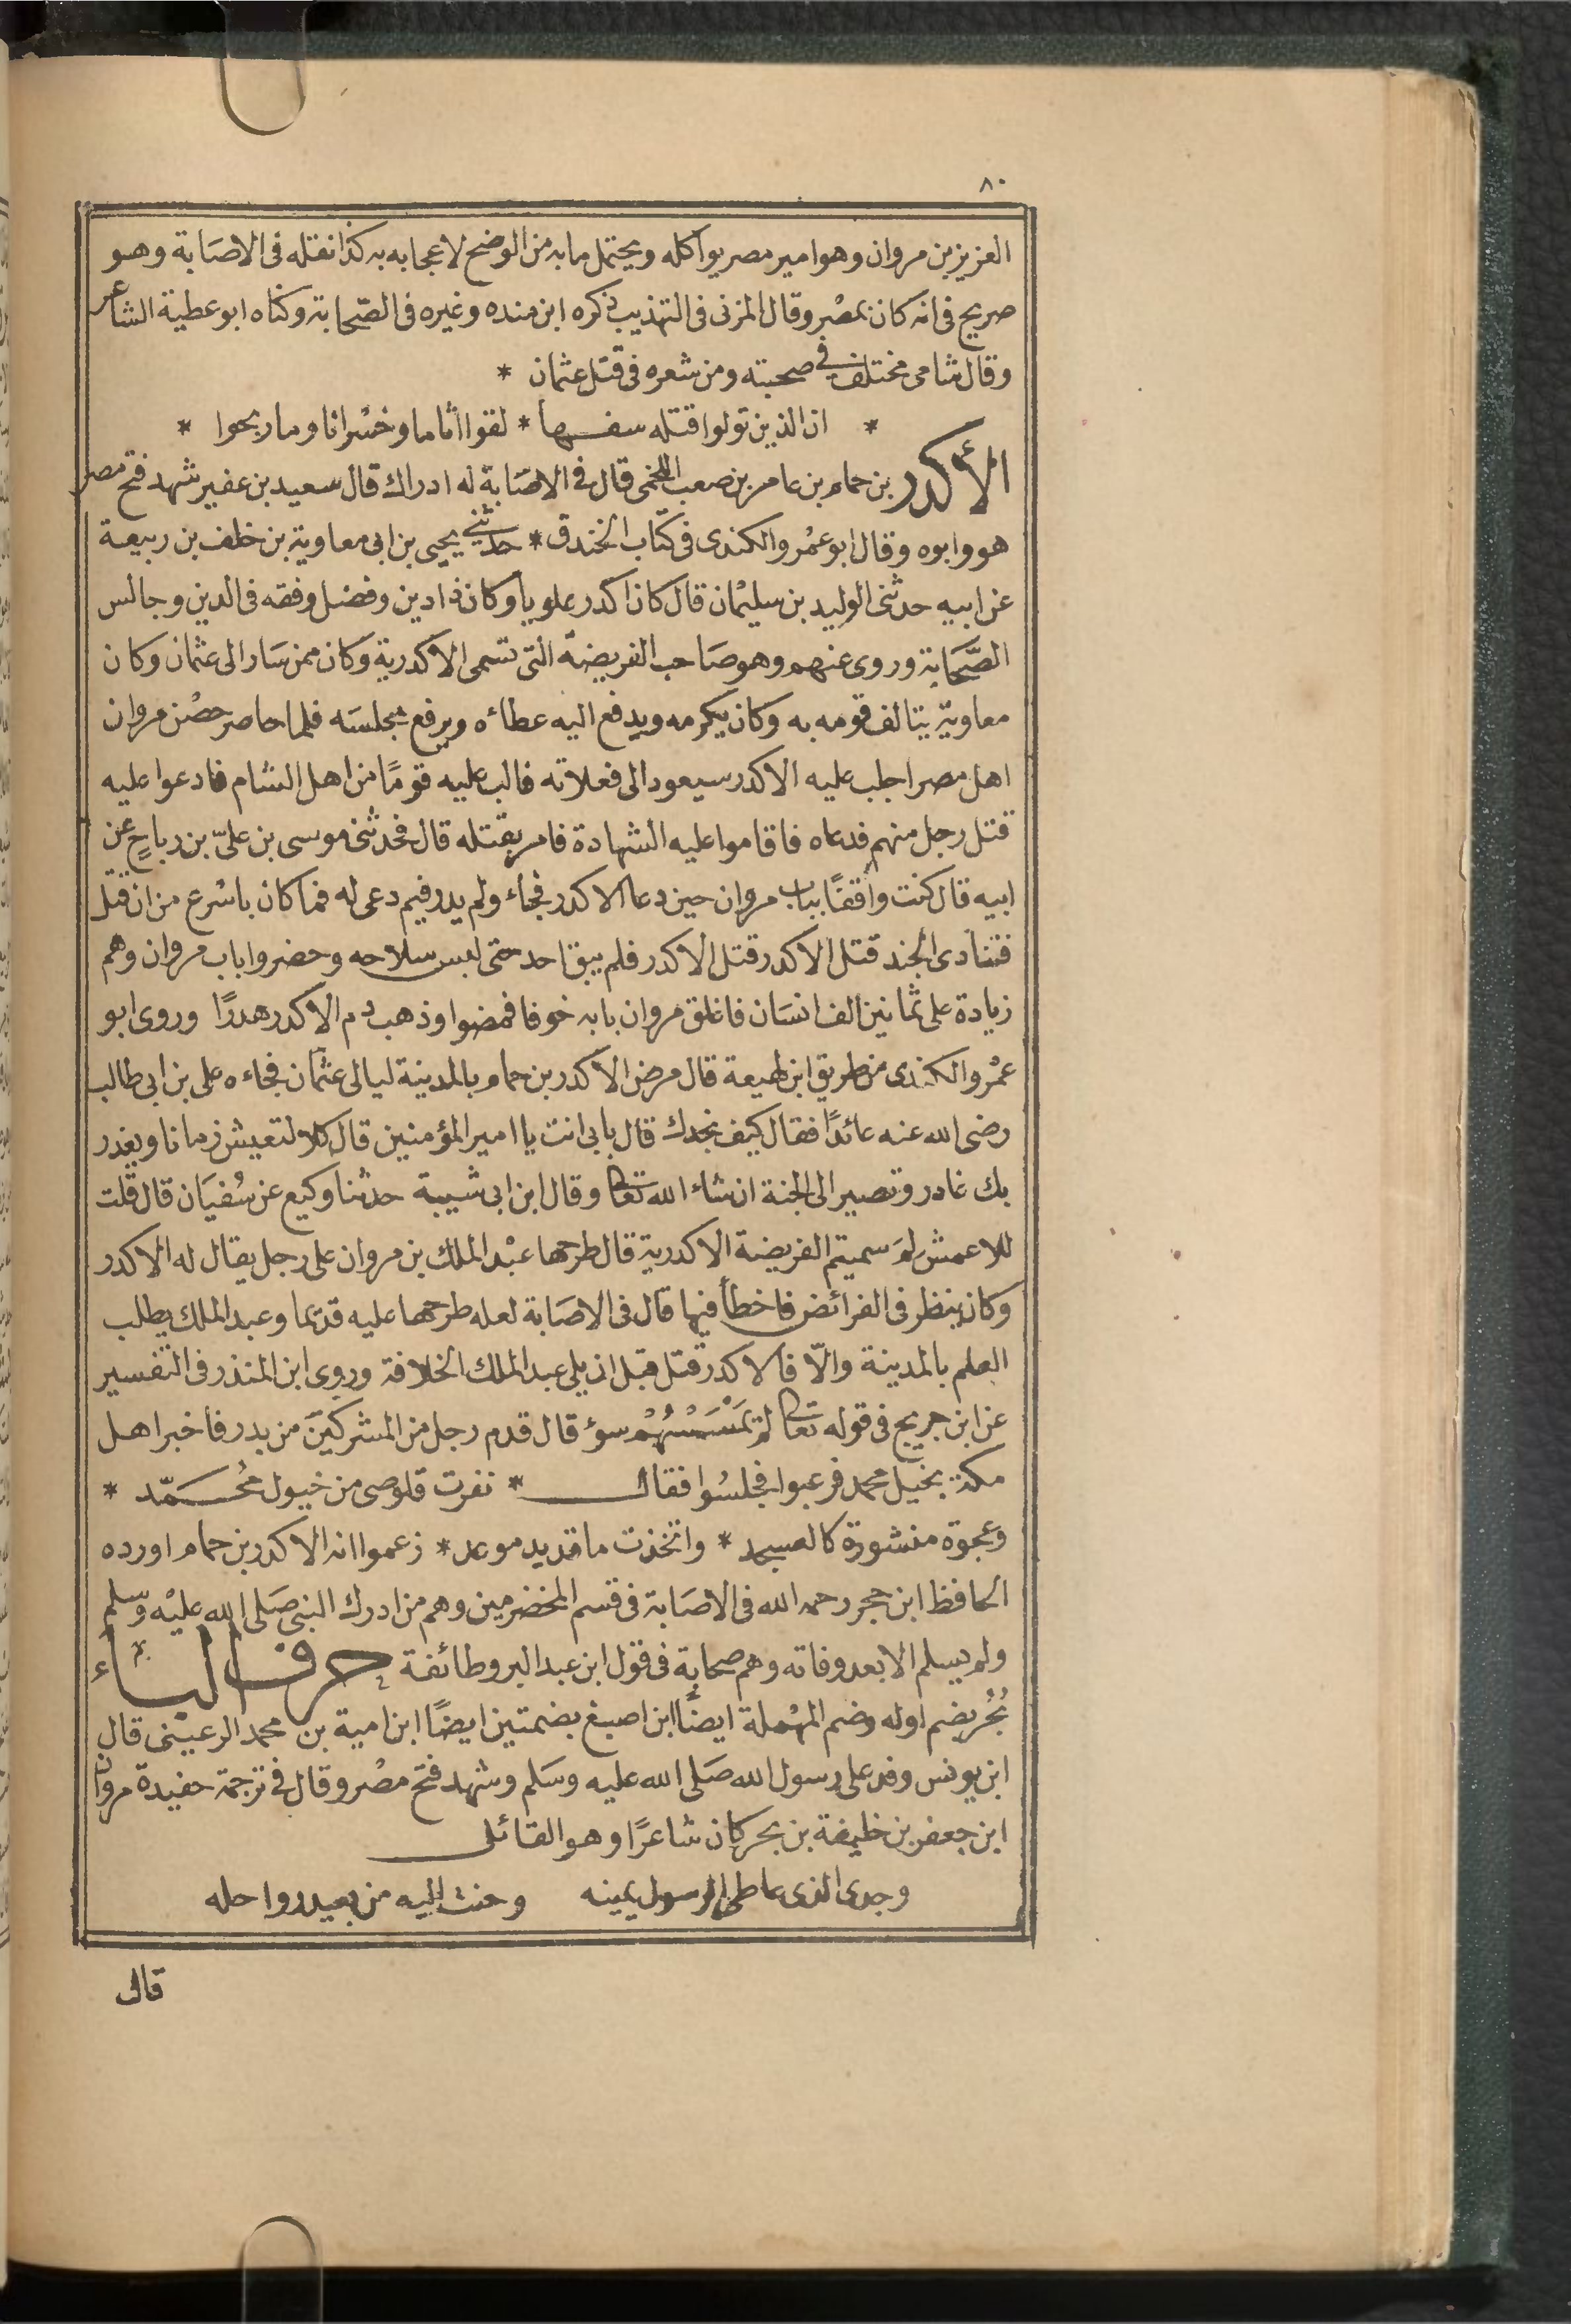 ٨٠
العزيز بن مروان وهو امير مصر يواكله ويحتمل ما به من الوضح لاعجابه به كذا نقله فى الاصابة وهو
صريح فى انه كان بمصر وقال المزنى فى التهذيب ذكره ابن منده وغيره فى الصّحابة وكناه ابو عطية الشاعر
وقال شامى مختلف في صحبته ومن شعره فى قتل عثمان *
* ان الذين تولوا قتله سفها * لقوا اثاما وخسرانا وما ربحوا *
الأكدر بن حمام بن عامر بن صعب اللخمى قال فى الاصَابة له ادراك قال سعيد بن عفير شهد فتح مصر
هو وابوه وقال ابو عمْر والكندى فى كتاب الخندق * حدثني يحيى بن ابى معاوية بن خلف بن ربيعة
عن ابيه حدثنى الوليد بن سليمْان قال كان اكدر علويا وكان ذا دين وفضل وفقه فى الدين وجالس
الصَّحَابة وروى عنهم وهو صَاحب الفريضة التى تسمى الاكدرية وكان ممن سَار الى عثمان وكان
معاوية يتالف قومه به وكان يكرمه ويدفع اليه عطاءه ويرفع مجلسَه فلما حاصر حصْن مروان
اهل مصر اجلب عليه الاكدر سيعود الى فعلاته فالب عليه قومًا من اهل الشام فادعوا عليه
قتل رجل منهم فدعاه فاقاموا عليه الشهادة فامر بقتله قال فحدثنى موسى بن علىّ بن رباحٍ عن
ابيه قال كنت واقفًا بباب مروان حين دعا الاكدر فجاء ولم يدر فيم دعى له فما كان باسْرع من ان قتل
فتنادى الجند قتل الاكدر قتل الاكدر فلم يبق احد حتى لبس سلاحه وحضروا باب مروان وهم
زيادة على ثمانين الف انسَان فاغلق مروان بابه خوفا فمضوا وذهب دم الاكدر هدرًا وروى ابو
عمْر والكندى من طريق ابن لهيعة قال مرض الاكدر بن حمام بالمدينة ليالى عثمان فجاءه على بن ابى طالب
رضى الله عنه عائدًا فقال كيف نجدك قال بابى انت يا امير المؤمنين قال كلا لتعيش زمانا ويغدر
بك غادر وتصير الى الجنة ان شاء الله تعالى وقال ابن ابى شيبة حدثنا وكيع عن سُفيَان قال قلت
للاعمش لمَ سميتم الفريضة الاكدرية قال طرحها عبْد الملك بن مروان على رجل يقال له الاكدر
وكان ينظر فى الفرائض فاخطأ فيها قال فى الاصَابة لعله طرحها عليه قديما وعبد الملك يطلب
العلم بالمدينة والّا فالاكدر قتل قبل ان يلى عبد الملك الخلافة وروى ابن المنذر فى التفسير
عن ابن جريج فى قوله تعالى لم يَمْسَسْهُمْ سوؤ قال قدم رجل من المشركيَن من بدر فاخبر اهل
مكة بخيل محمد فرعبوا فجلسُوا فقال * نفرت قلوصى من خيول محُمّد *
وعجوة منشورة كالعسجد * واتخذت ما قديد موعد * زعموا انه الاكدر بن حمام اورده
الحافظ ابن حجر رحمه الله فى الاصَابة فى قسم المخضرمين وهم من ادرك النبى صَلى الله عليْه وسلم
ولم يسلم الا بعد وفاته وهم صحابة فى قول ابن عبد البر وطائفة حرف الباء
بُحُر بضم اوله وضم المهْملة ايضًا ابن اصبغ بضمتين ايضًا ابن امية بن محمد الرعينى قال
ابن يونس وفد على رسول الله صَلى الله عليه وسَلم وشهد فتح مصْر وقال فى ترجمة حفيدة مروان
ابن جعفر بن خليفة بن بحر كان شاعرًا وهو القائل
وجدى الذى عاطى الرسول يمينه وحنت اليه من بعيد رواحله
قال